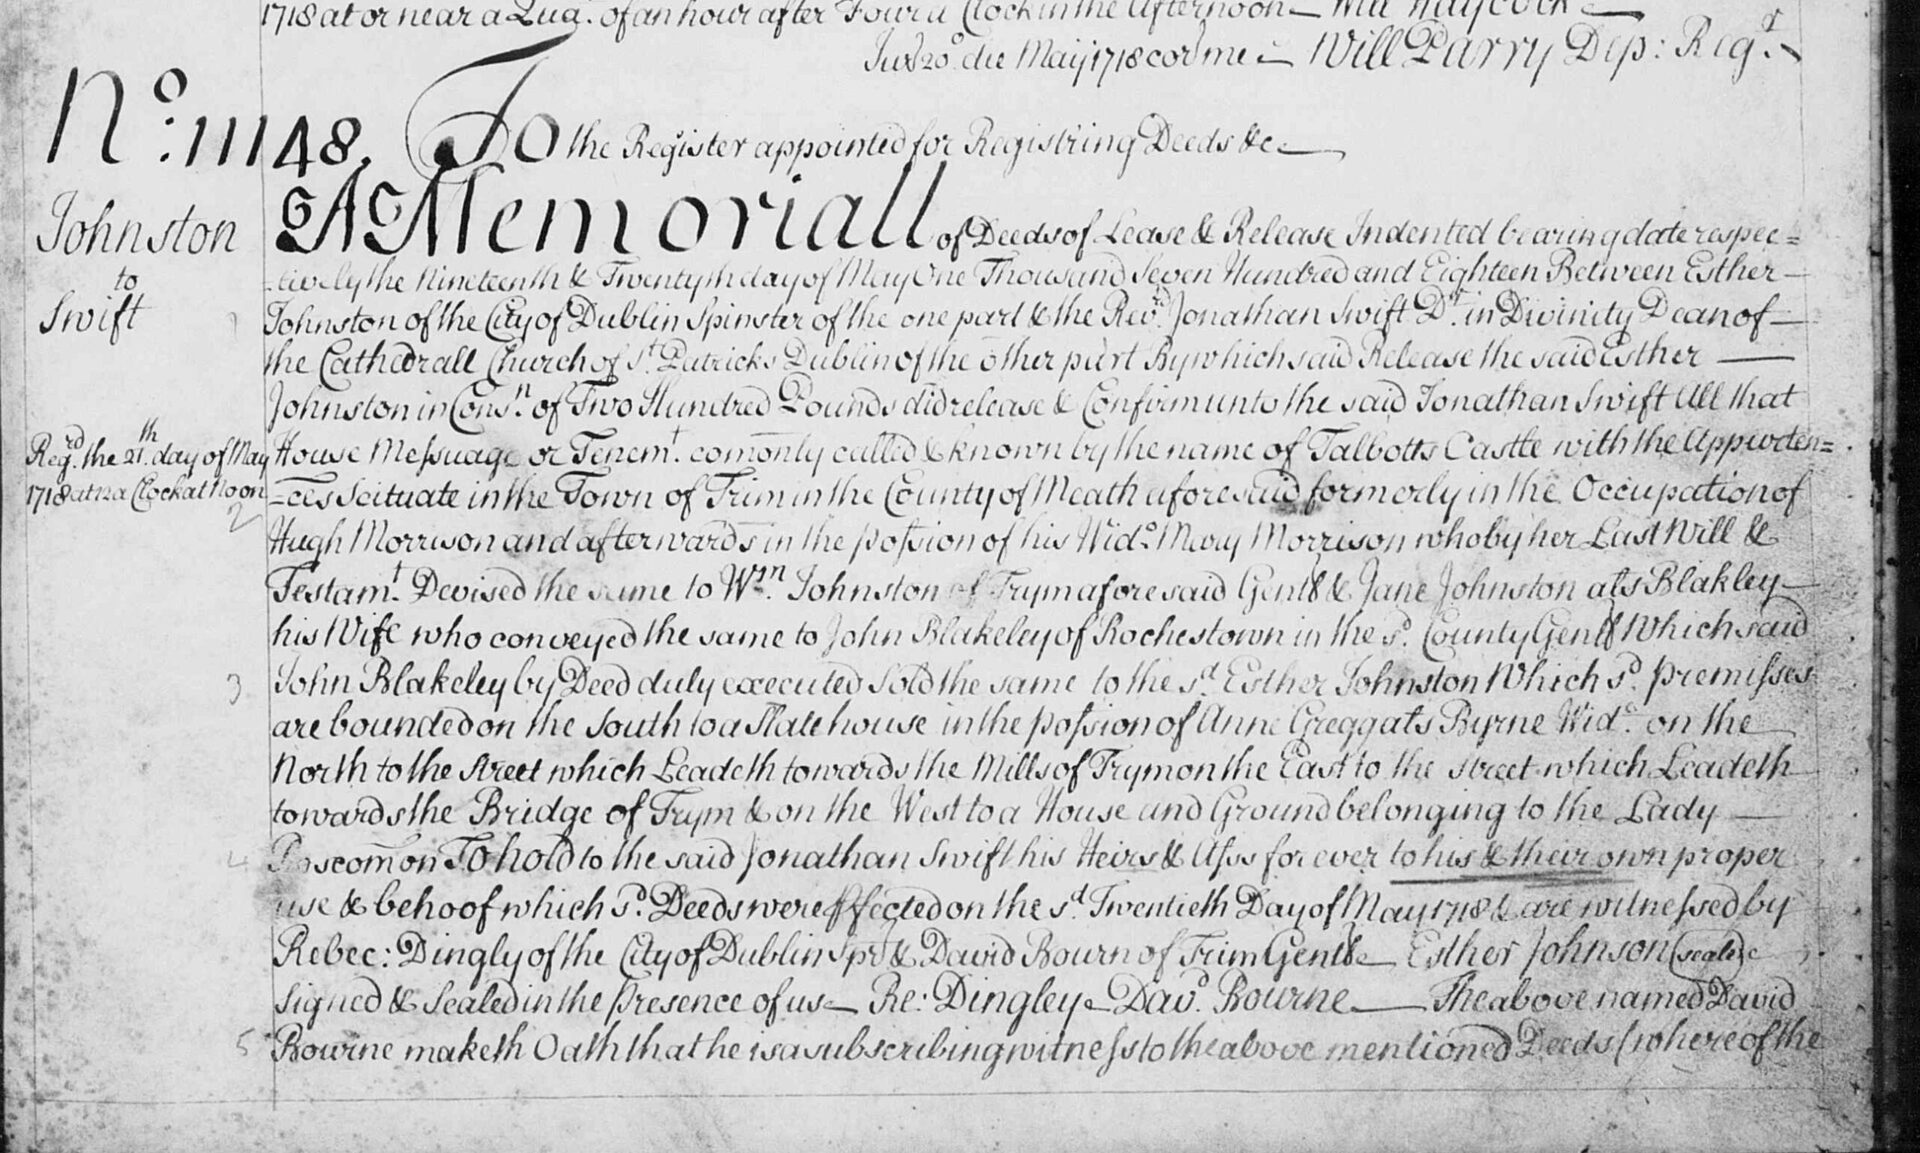 1718 at or near a Qua.r of an hour after Four a Clock in the Afternoon — Will Haycock —
Jur 20.o die Maij 1718 cor me — Will Parry Dep: Reg.r
No: 11148. To the Register appointed for Registring Deeds &c —
Johnston
to
Swift
A Memoriall of Deeds of Lease & Release Indented bearing date respec=
=tively the Nineteenth & Twentyth day of May One Thousand Seven Hundred and Eighteen Between Esther —
Johnston of the City of Dublin Spinster of the one part & the Rev.d Jonathan Swift D.r in Divinity Dean of —
the Cathedrall Church of S.t Patricks Dublin of the other part By which said Release the said Esther —
Johnston in Cons.n of Two Hundred Pounds did release & Confirm unto the said Jonathan Swift All that
Reg.rd the 21.th day of May
1718 at 12 a Clock at Noon
House Messuage or Tenem.t comonly called & known by the name of Talbotts Castle with the Appurten=
=ces Scituate in the Town of Trim in the County of Meath aforesaid formerly in the Occupation of
2
Hugh Morrison and afterwards in the possion of his Wid.o Mary Morrison who by her Last Will &
Testam.t Devised the same to W.m Johnston of Trym aforesaid Gent & Jane Johnston als Blakley —
his Wife who conveyed the same to John Blakeley of Rochestown in the s.d County Gent Which said
3
John Blakeley by Deed duly executed Sold the same to the s.d Esther Johnston Which s.d premisses
are bounded on the South to a Slate house in the possion of Anne Gregg als Byrne Wid.o on the
North to the Street which Leadeth towards the Mills of Trym on the East to the street which Leadeth
towards the Bridge of Trym & on the West to a House and Ground belonging to the Lady —
4
Roscomon To hold to the said Jonathan Swift his Heirs & Ass for ever to his & their own proper
use & behoof which s.d Deeds were Effected on the s.d Twentieth Day of May 1718 & are witnessed by
Rebec: Dingly of the City of Dublin Spr & David Bourn of Trim Gent — Esther Johnson (seale)
Signed & Sealed in the Presence of us — Re: Dingley — Dav.d Bourne — The above named David
5
Bourne maketh Oath that he is a subscribing witness to the above mentioned Deeds (whereof the